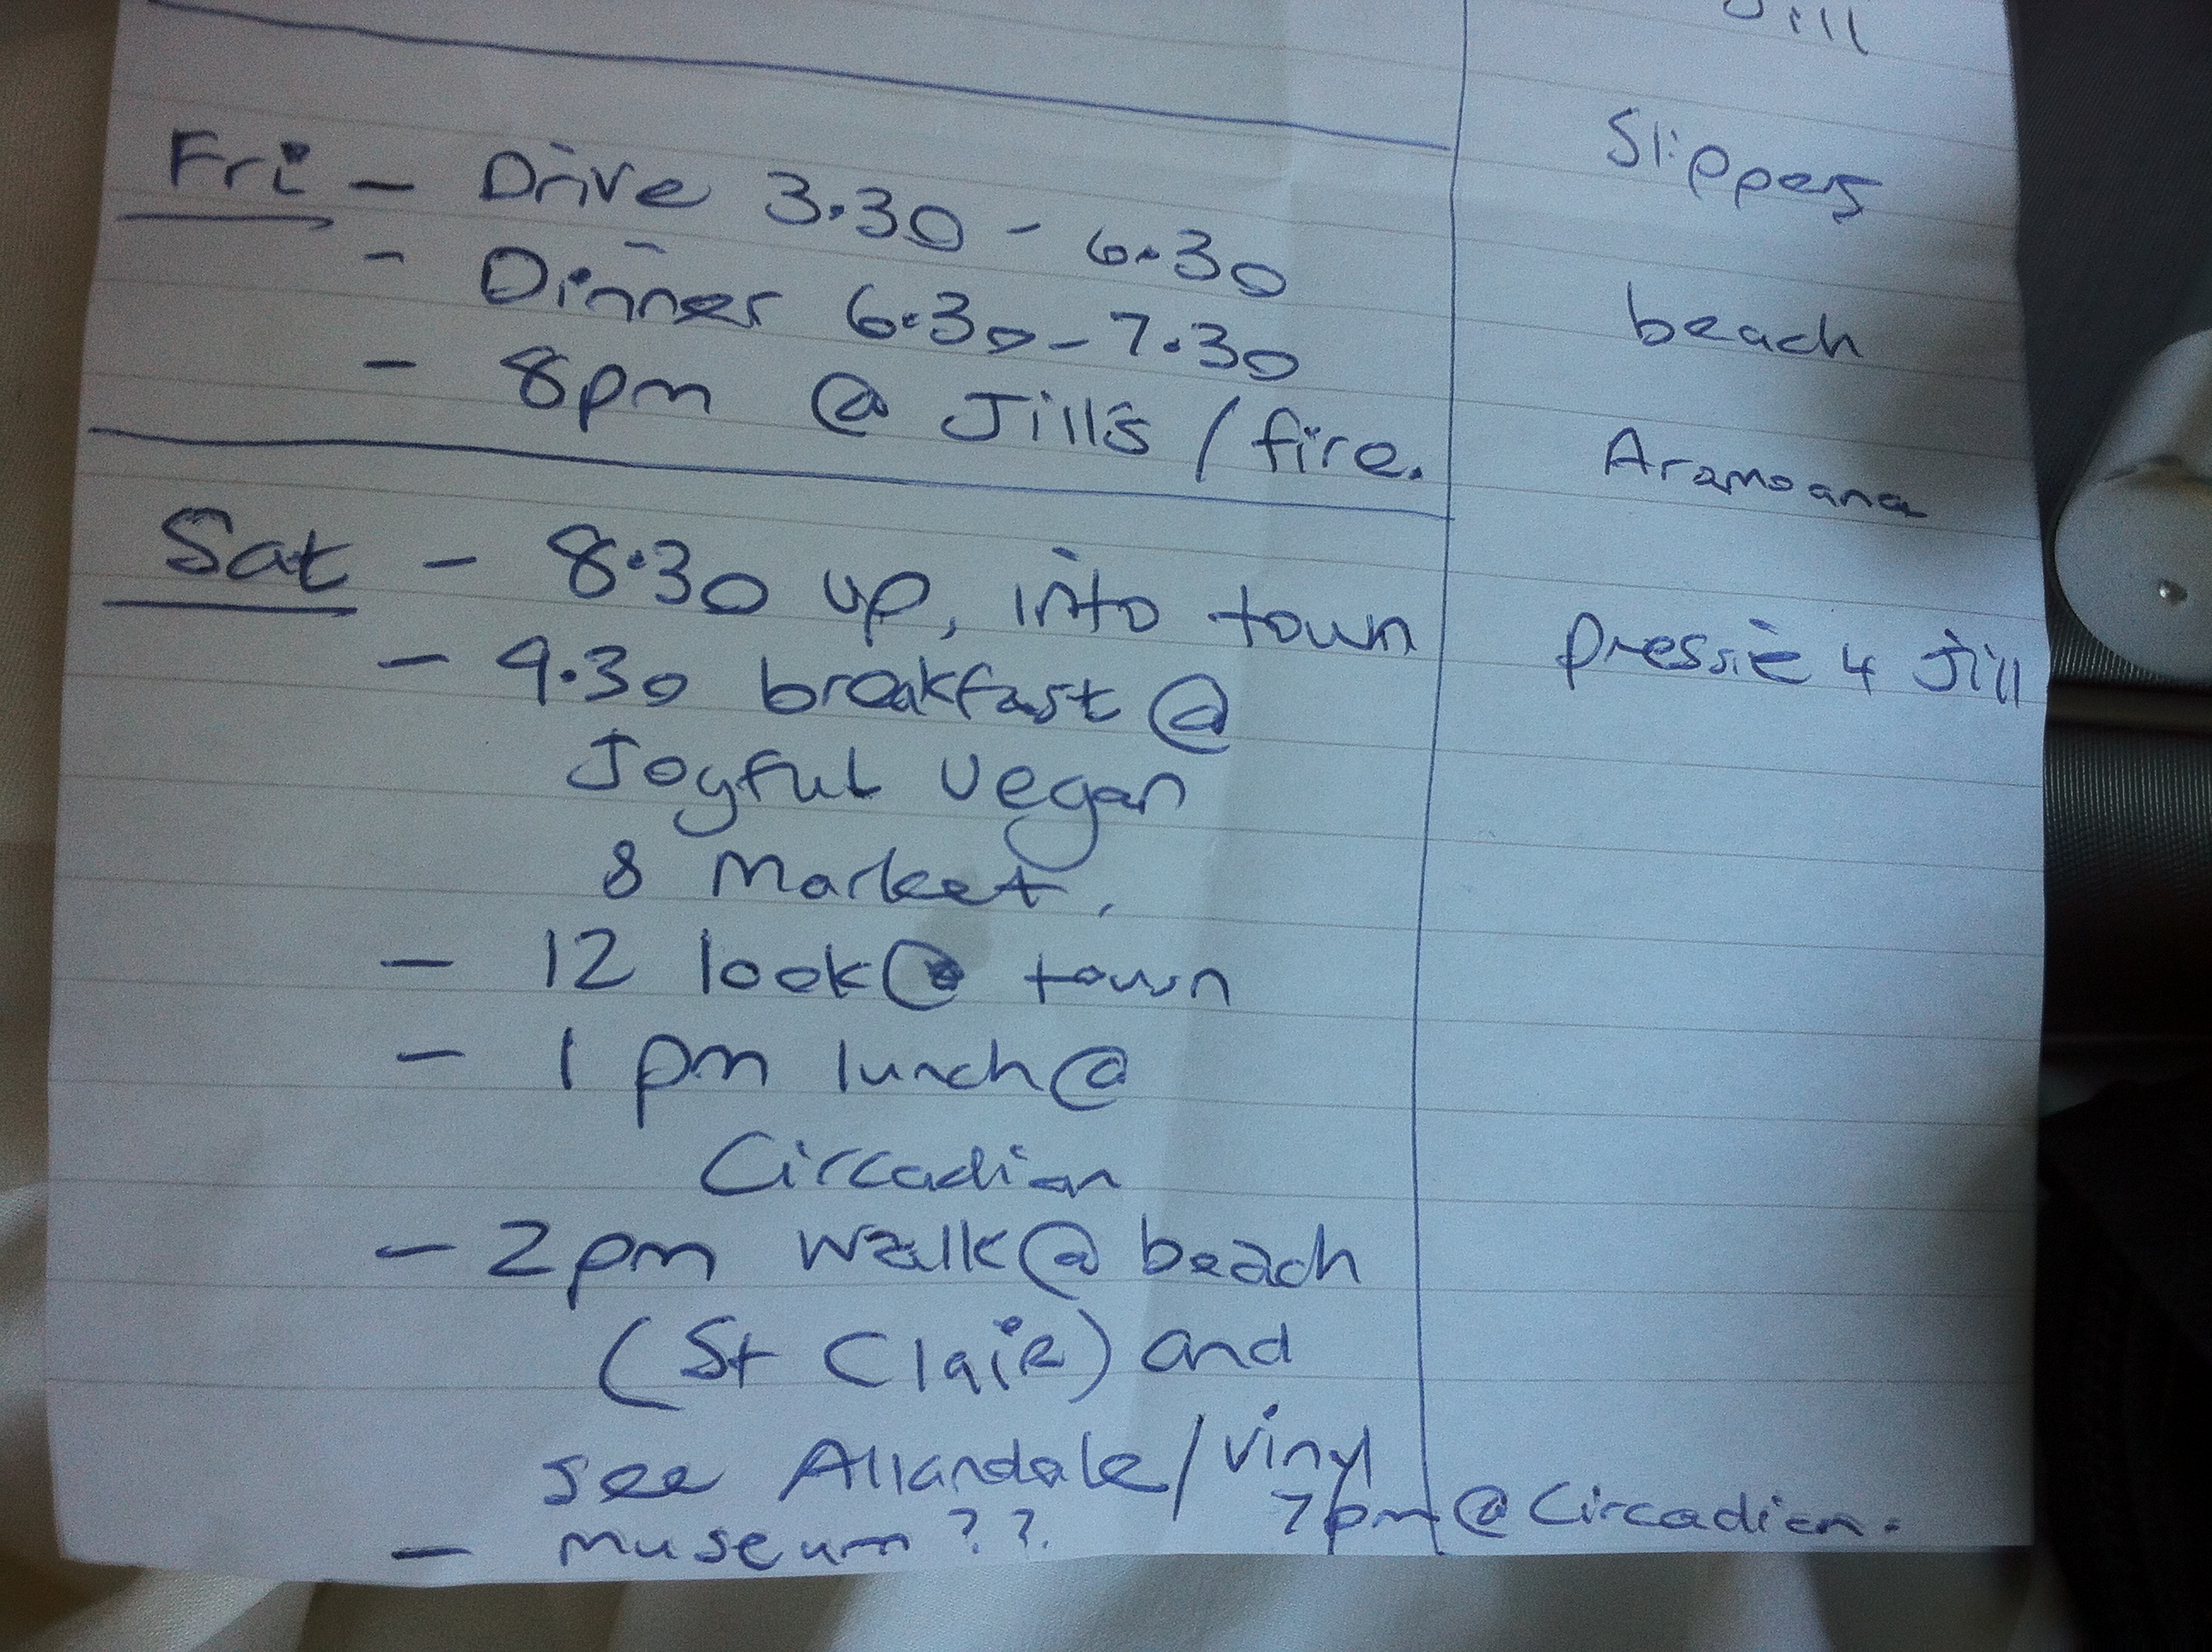 Jill
Fri - Drive 3.30 - 6.30
- Dinner 6.30 - 7.30
- 8pm @ Jill's / fire.
Sat - 8.30 up, into town
- 9.30 breakfast @
Joyful Vegan
& Market,
- 12 look @ town
- 1 pm lunch @
Circadian
- 2pm walk @ beach
(St Clair) and
see Allandale / vinyl
- museum ??. 7pm @ Circadian.
Slippers
beach
Aramoana
pressie 4 Jill